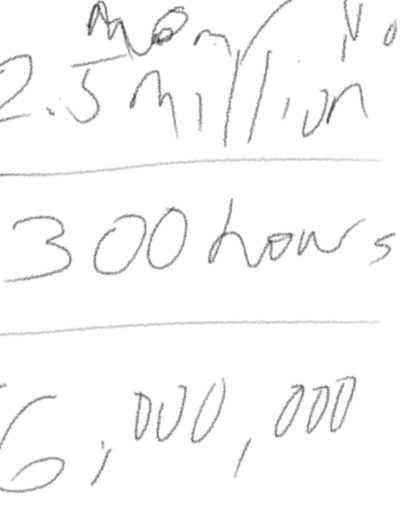 2.5 million
300 hours
6,000,000